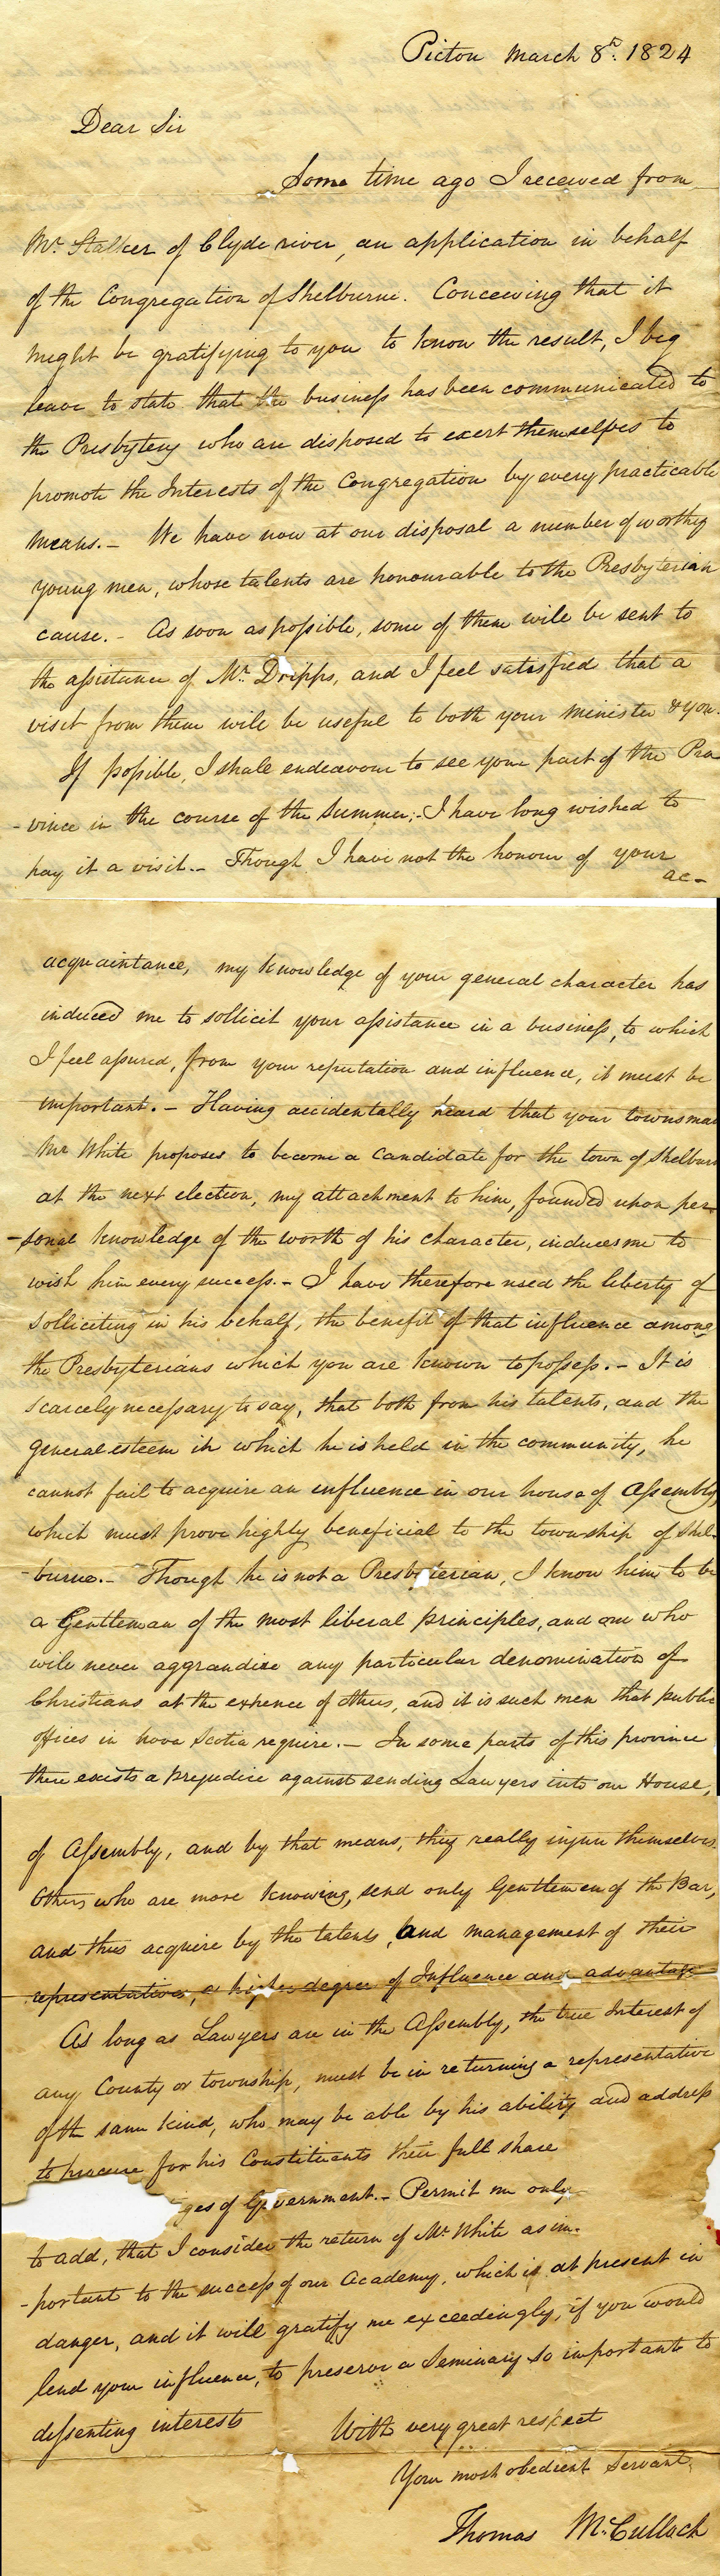 Pictou March 8th. 1824
Dear Sir
Some time ago I received from
Mr. Stalker of Clyde river, an application in behalf
of the Congregation of Shelburne. Conceiving that it
might be gratifying to you to know the result, I beg
leave to state that the business has been communicated to
the Presbytery who are disposed to exert themselves to
promote the Interests of the Congregation by every practicable
means. - We have now at our disposal a number of worthy
young men, whose talents are honourable to the Presbyterian
cause. - As soon as possible, some of them will be sent to
the assistance of Mr. Dripps, and I feel satisfied that a
visit from them will be useful to both your minister & you.
If possible, I shall endeavour to see your part of the Pro
-vince in the course of the Summer; - I have long wished to
pay it a visit. - Though I have not the honour of your
ac-
acquaintance, my knowledge of your general character has
induced me to sollicit your assistance in a business, to which
I feel assured, from your reputation and influence, it must be
important. - Having accidentally heard that your townsman
Mr White proposes to become a Candidate for the town of Shelburn
at the next election, my attachment to him, founded upon per-
-sonal knowledge of the worth of his character, induces me to
wish him every success. - I have therefore used the liberty of
solliciting in his behalf, the benefit of that influence among
the Presbyterians which you are known to possess. - It is
scarcely necessary to say, that both from his talents, and the
general esteem in which he is held in the community, he
cannot fail to acquire an influence in our house of Assembly,
which must prove highly beneficial to the township of Shel-
-burne. - Though he is not a Presbyterian, I know him to be
a Gentleman of the most liberal principles, and one who
will never aggrandize any particular denomination of
Christians at the expence of others, and it is such men that public
offices in nova Scotia require. - In some parts of this province
there exists a prejudice against sending Lawyers into our House,
of Assembly, and by that means, they really injure themselves.
Others who are more knowing, send only Gentlemen of the Bar,
and thus acquire by the talents, and management of their
representatives, a higher degree of Influence and advantage
As long as Lawyers are in the Assembly, the true Interest of
any County or township, must be in returning a representative
of the same kind, who may be able by his ability and address
to procure for his Constituents their full share
ges of Government. - Permit me only
to add, that I consider the return of Mr White as im-
-portant to the success of our Academy, which is at present in
danger, and it will gratify me exceedingly, if you would
lend your influence, to preserve a Seminary so important to
dissenting interests
With very great respect
Your most obedient Servant,
Thomas McCulloch